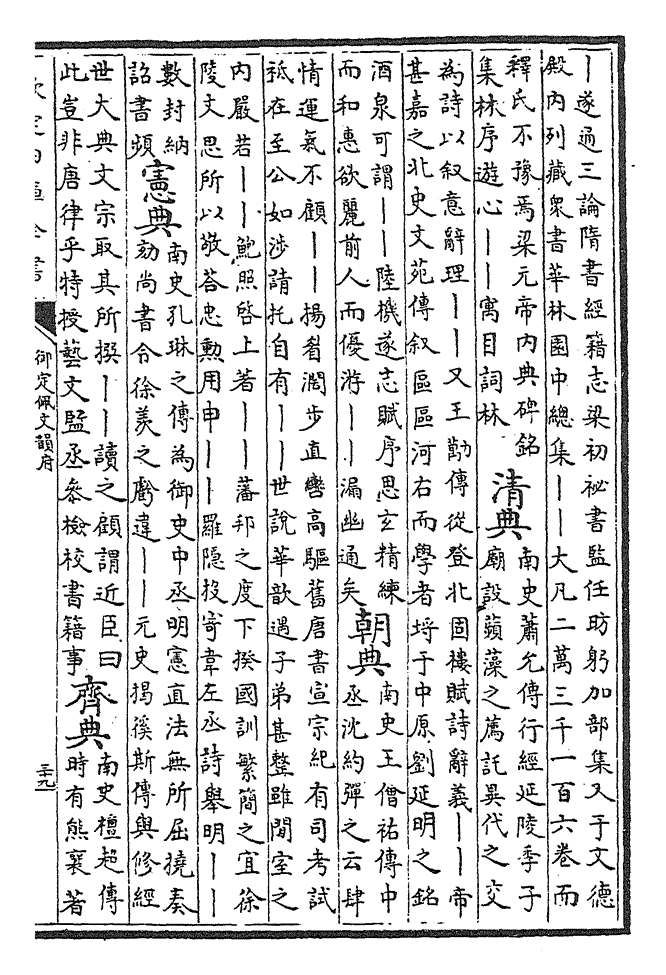 ｜遂通三論隋書經籍志梁初祕書監任昉躬加部集又于文德
殿内列藏衆書華林園中總集｜｜大凡二萬三千一百六卷而
釋氏不豫焉梁元帝内典碑銘
集林序遊心｜｜寓目詞林
清典
南史蕭允傳行經延陵季子
廟設蘋藻之薦託異代之交
為詩以叙意辭理｜｜又王勱傳從登北固樓賦詩辭義｜｜帝
甚嘉之北史文苑傳叙區區河右而學者埒于中原劉延明之銘
酒泉可謂｜｜陸機遂志賦序思玄精練
而和惠欲麗前人而優游｜｜漏幽通矣
朝典
南史王僧祐傳中
丞沈約彈之云肆
情運氣不顧｜｜揚眉濶步直轡高驅舊唐書宣宗紀有司考試
祗在至公如涉請托自有｜｜世說華歆遇子弟甚整雖閒室之
内嚴若｜｜鮑照啓上著｜｜｜藩邦之度下揆國訓繁簡之宜徐
陵文思所以敬荅忠勲用申｜｜羅隐投寄韋左丞詩舉明｜｜
數封納
詔書頻
憲典
南史孔琳之傳為御史中丞明憲直法無所屈撓奏
劾尚書令徐羨之虧違｜｜元史揭傒斯傳與修經
世大典文宗取其所撰｜｜讀之顧謂近臣曰
此豈非唐律乎特授藝文監丞叅檢校書籍事
齊典
南史檀超傳
時有熊襄著
御定佩文韻府
三十九